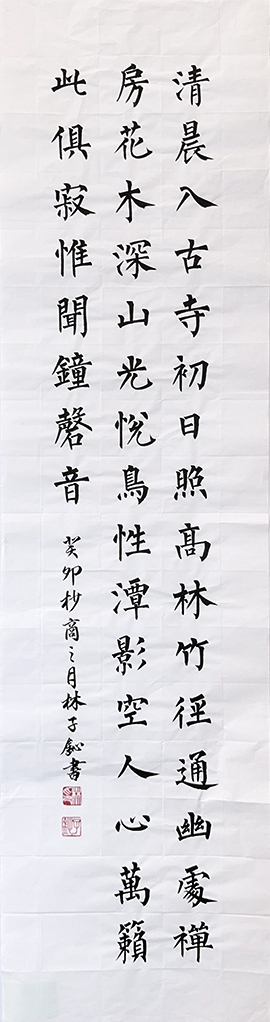 清晨入古寺初日照高林竹徑通幽處禪
房花木深山光悅鳥性潭影空人心萬籟
此俱寂惟聞鐘磬音
癸卯杪商之月林子鉍書